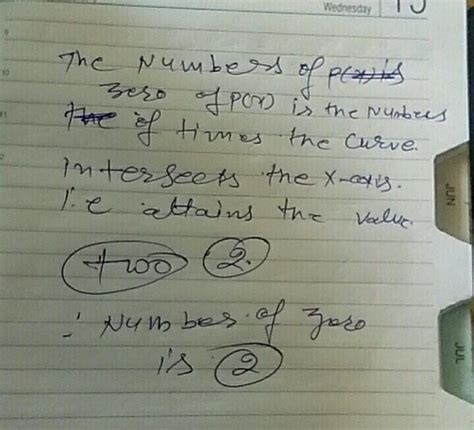 Wednesday
The Numbers of p(x) is
zero of p(x) is the Numbers
the of times the curve.
intersects the x-axis.
i.e attains the value.
two 2.
∴ Number of zero
is 2
JUN
JUL